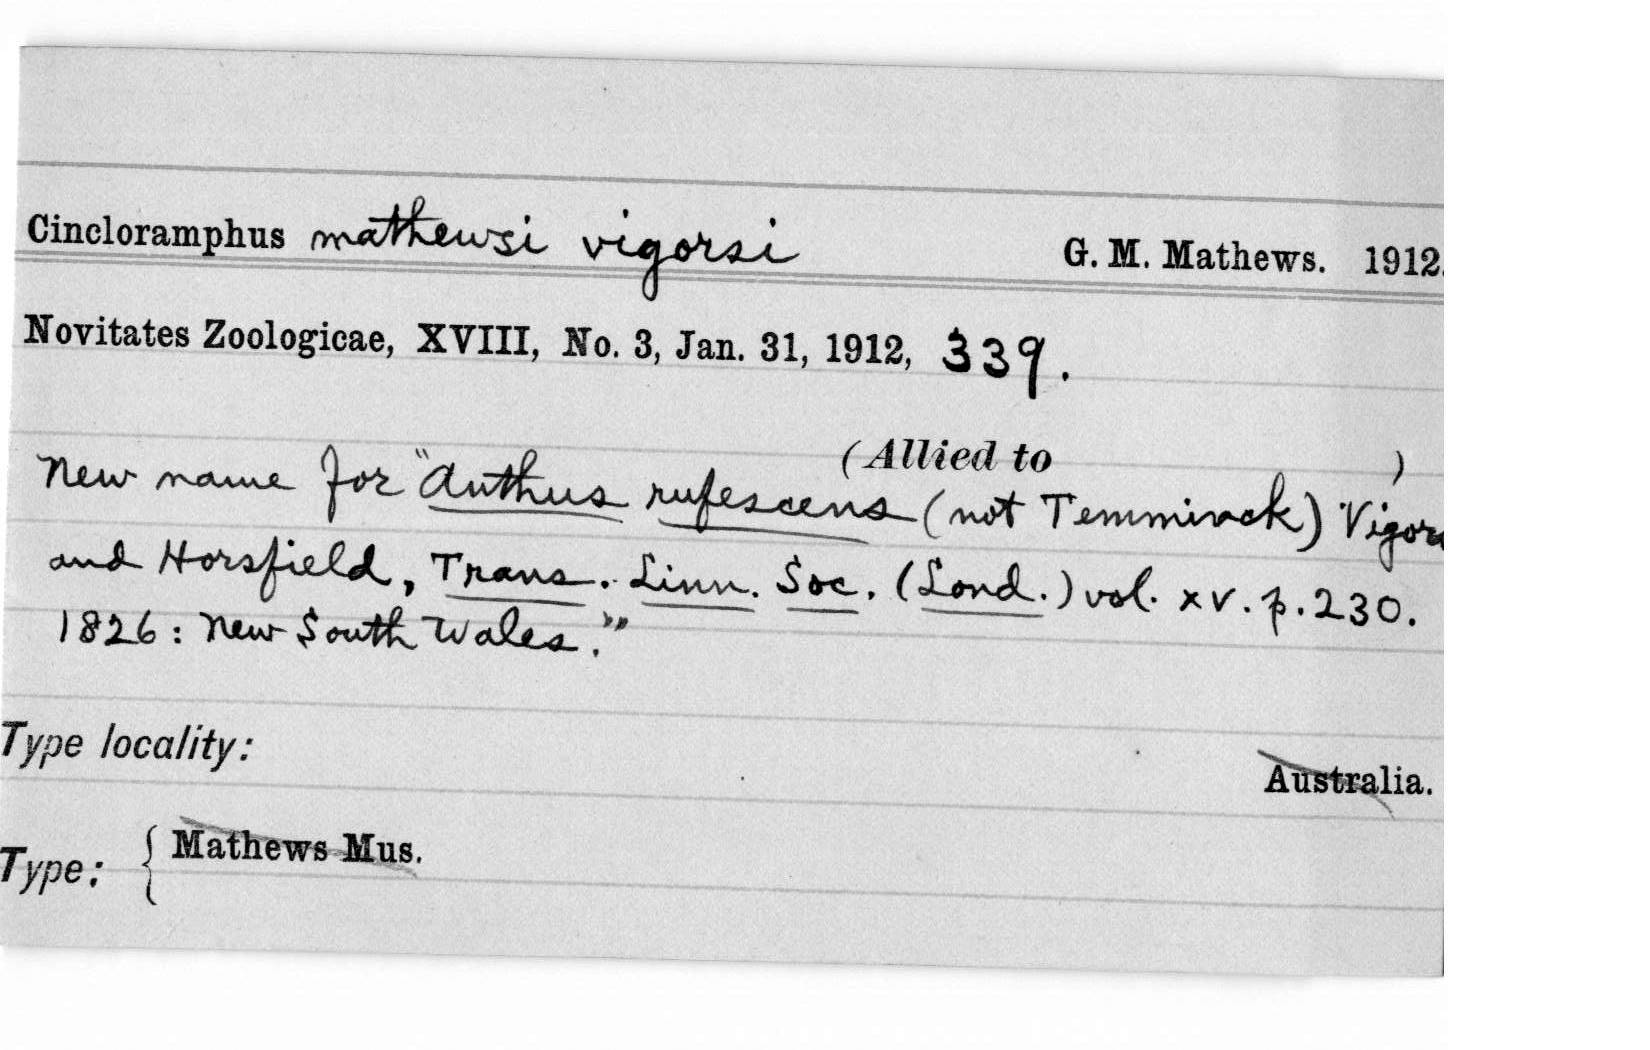 Cincloramphus mathewsi vigorsi G. M. Mathews. 1912.
Novitates Zoologicae, XVIII, No. 3, Jan. 31, 1912, 339.
(Allied to )
New name for "Anthus rufescens (not Temminck) Vigors
and Horsfield, Trans. Linn. Soc. (Lond.) vol. xv. p. 230.
1826: New South Wales."
Type locality: Australia.
Type: { Mathews Mus.